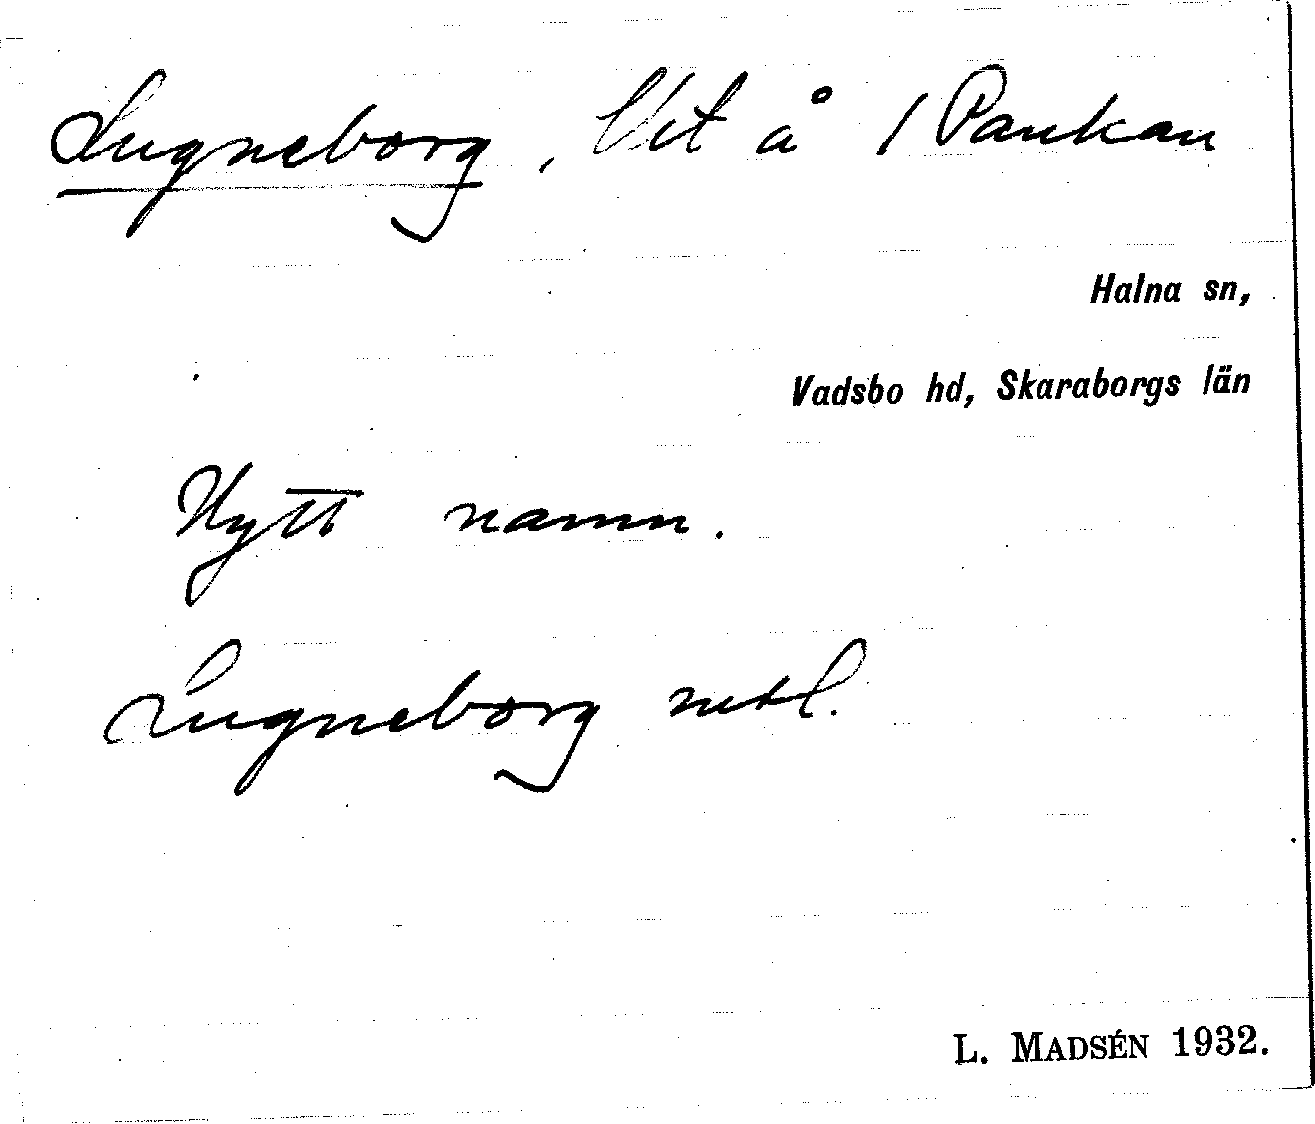 Lugneborg, Utt å 1 Pankan
Halna sn,
Vadsbo hd, Skaraborgs län
Nytt namn.
Lugneborg mtl.
L. MADSÉN 1932.